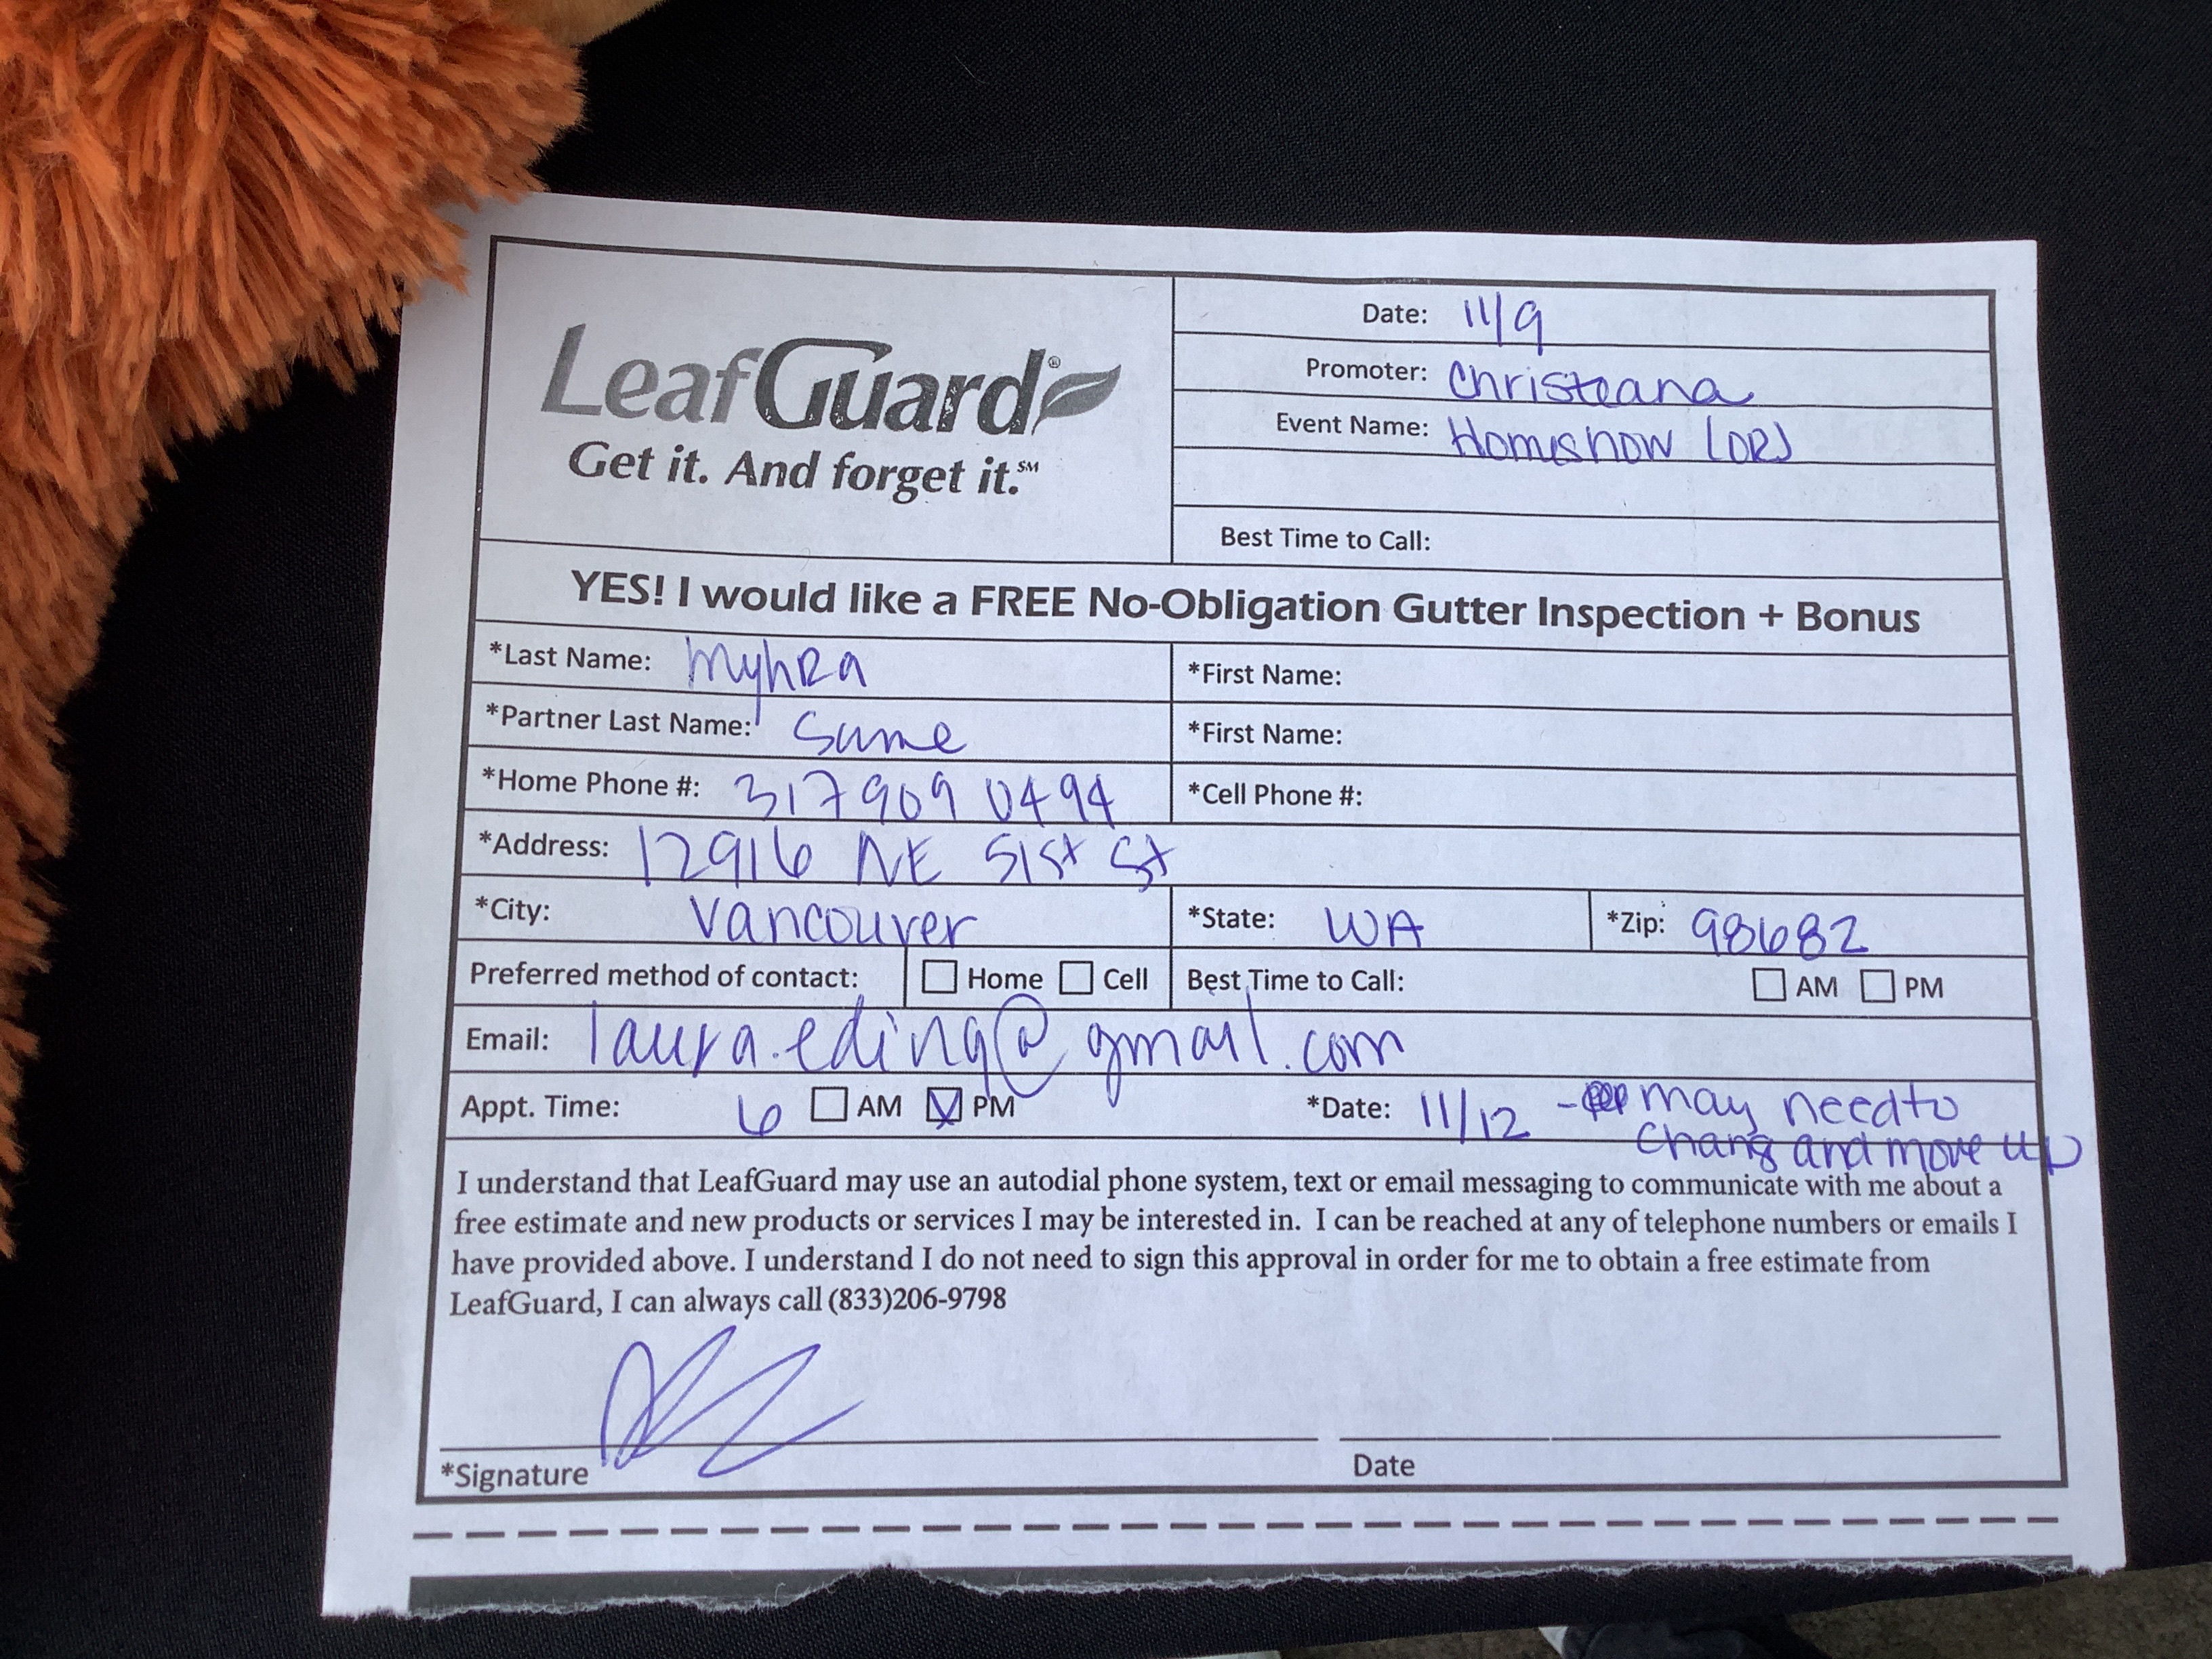 LeafGuard®
Get it. And forget it.℠
Date: 11/9
Promoter: Christeana
Event Name: Homeshow (OR)
Best Time to Call:
YES! I would like a FREE No-Obligation Gutter Inspection + Bonus
*Last Name: Myhra *First Name:
*Partner Last Name: Same *First Name:
*Home Phone #: 317 909 0494 *Cell Phone #:
*Address: 12916 NE 51st St
*City: Vancouver *State: WA *Zip: 98682
Preferred method of contact: Home Cell Best Time to Call: AM PM
Email: laura.eding@gmail.com
Appt. Time: 6 AM PM *Date: 11/12 - may need to
chang and move up
I understand that LeafGuard may use an autodial phone system, text or email messaging to communicate with me about a
free estimate and new products or services I may be interested in. I can be reached at any of telephone numbers or emails I
have provided above. I understand I do not need to sign this approval in order for me to obtain a free estimate from
LeafGuard, I can always call (833)206-9798
*Signature Date